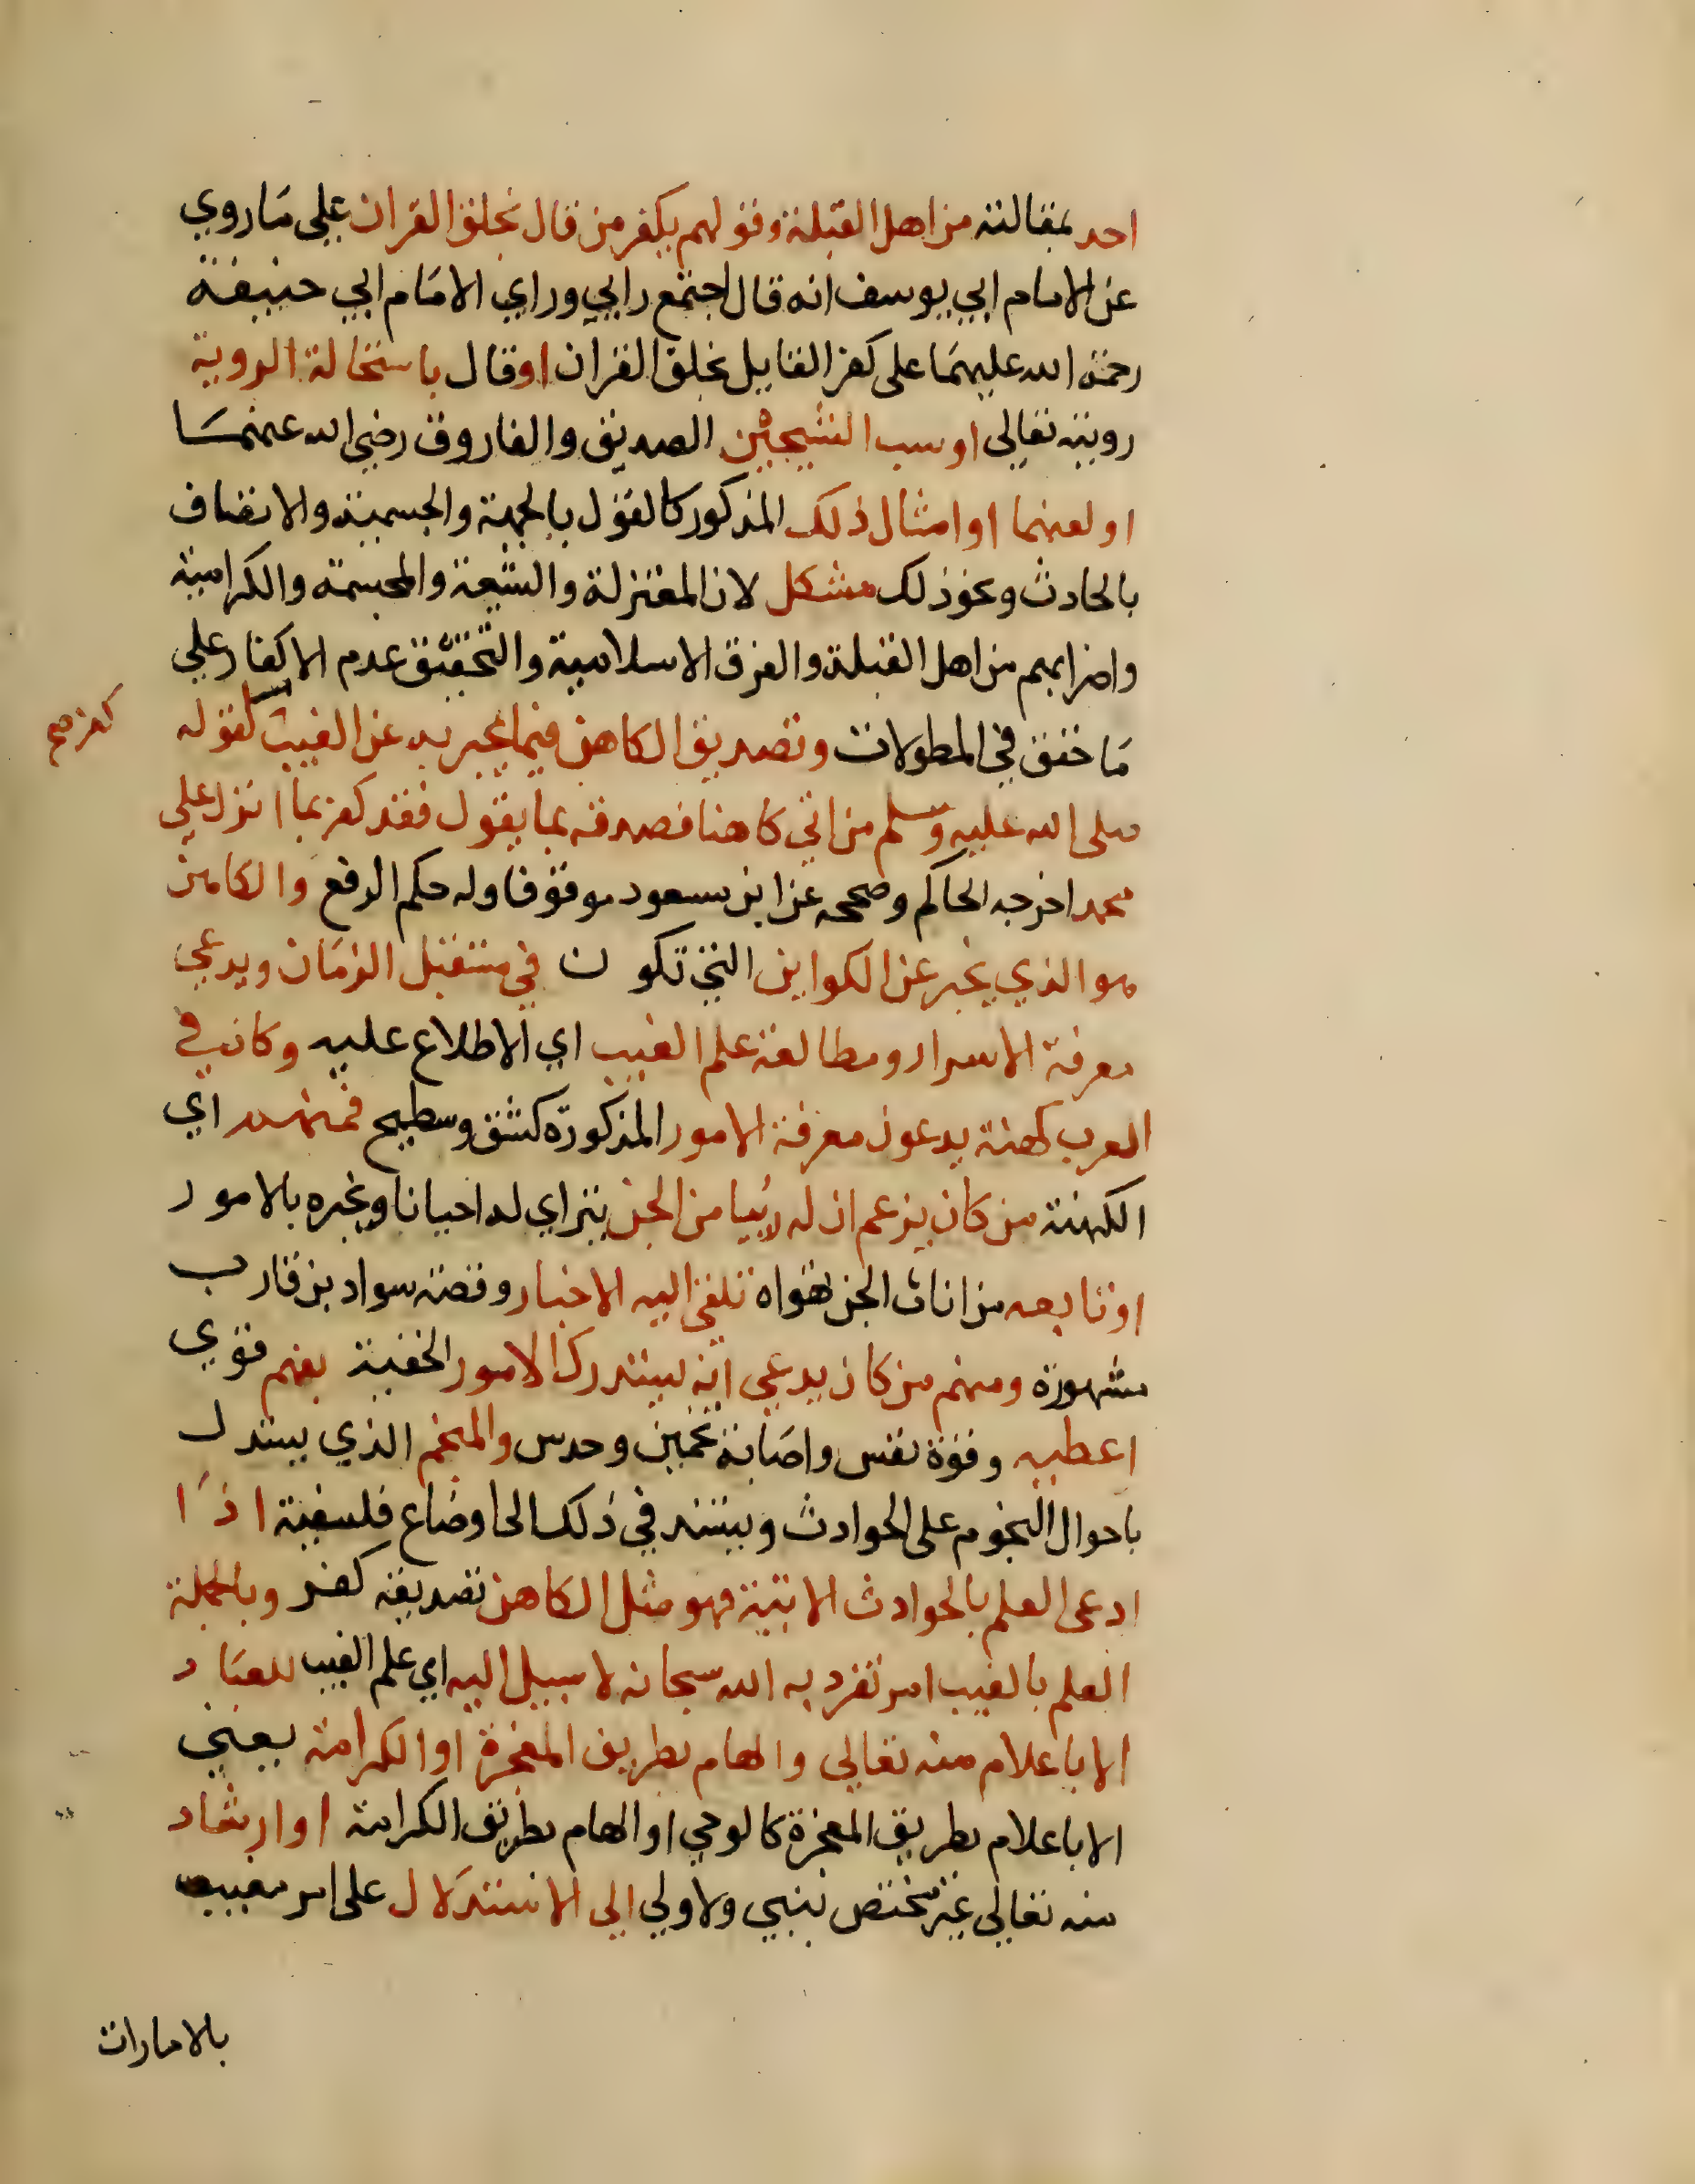 احد بمقالته من اهل القبلة وقولهم بكفر من قال بخلق القران على ما روي
عن الامام ابي يوسف انه قال اجتمع رايي وراي الامام ابي حنيفة
رحمة الله عليهما على كفر القايل بخلق القران او قال باستحالة الروية
رويته تعالى او سب الشيخين الصديق والفاروق رضي الله عنهما
او لعنهما او امثال ذلك المذكور كالقول بالجهة والجسمية والاتصاف
بالحادث ونحو ذلك مشكل لان المعتزلة والشيعة والمجسمة والكرامية
واضرابهم من اهل القبلة والفرق الاسلامية والتحقيق عدم الاكفار على
ما حقق في المطولات وتصديق الكاهن فيما يخبر به عن الغيب لقوله
كفر صح
صلى الله عليه وسلم من اتى كاهنا فصدقه بما يقول فقد كفر بما انزل على
محمد اخرجه الحاكم وصححه عن ابن مسعود موقوفا وله حكم الرفع والكاهن
هو الذي يخبر عن الكواين التي تكون في مستقبل الزمان ويدعي
معرفة الاسرار ومطالعة علم الغيب اي الاطلاع عليه وكان في
العرب كهنة يدعون معرفة الامور المذكورة كشق وسطيح فمنهم اي
الكهنة من كان يزعم ان له رئيا من الجن يتراي له احيانا ويخبره بالامور
او تابعه من اناث الجن تهواه تلقي اليه الاخبار وقصة سواد بن قارب
مشهورة ومنهم من كان يدعي انه يستدرك الامور الخفية بفهم قوي
اعطيه وقوة نفس واصابة تخمين وحدس والمنجم الذي يستدل
باحوال النجوم على الحوادث ويستند في ذلك الى اوضاع فلسفية اذا
ادعى العلم بالحوادث الاتية فهو مثل الكاهن تصديقه كفر وبالجملة
العلم بالغيب امر تفرد به الله سبحانه لا سبيل اليه اي علم الغيب للعباد
الا باعلام منه تعالى والهام بطريق المعجزة او الكرامة يعني
الا باعلام بطريق المعجزة كالوحي او الهام بطريق الكرامة او ارشاد
منه تعالى غير مختص بنبي ولا ولي الى الاستدلال على امر مغيب
بالامارات